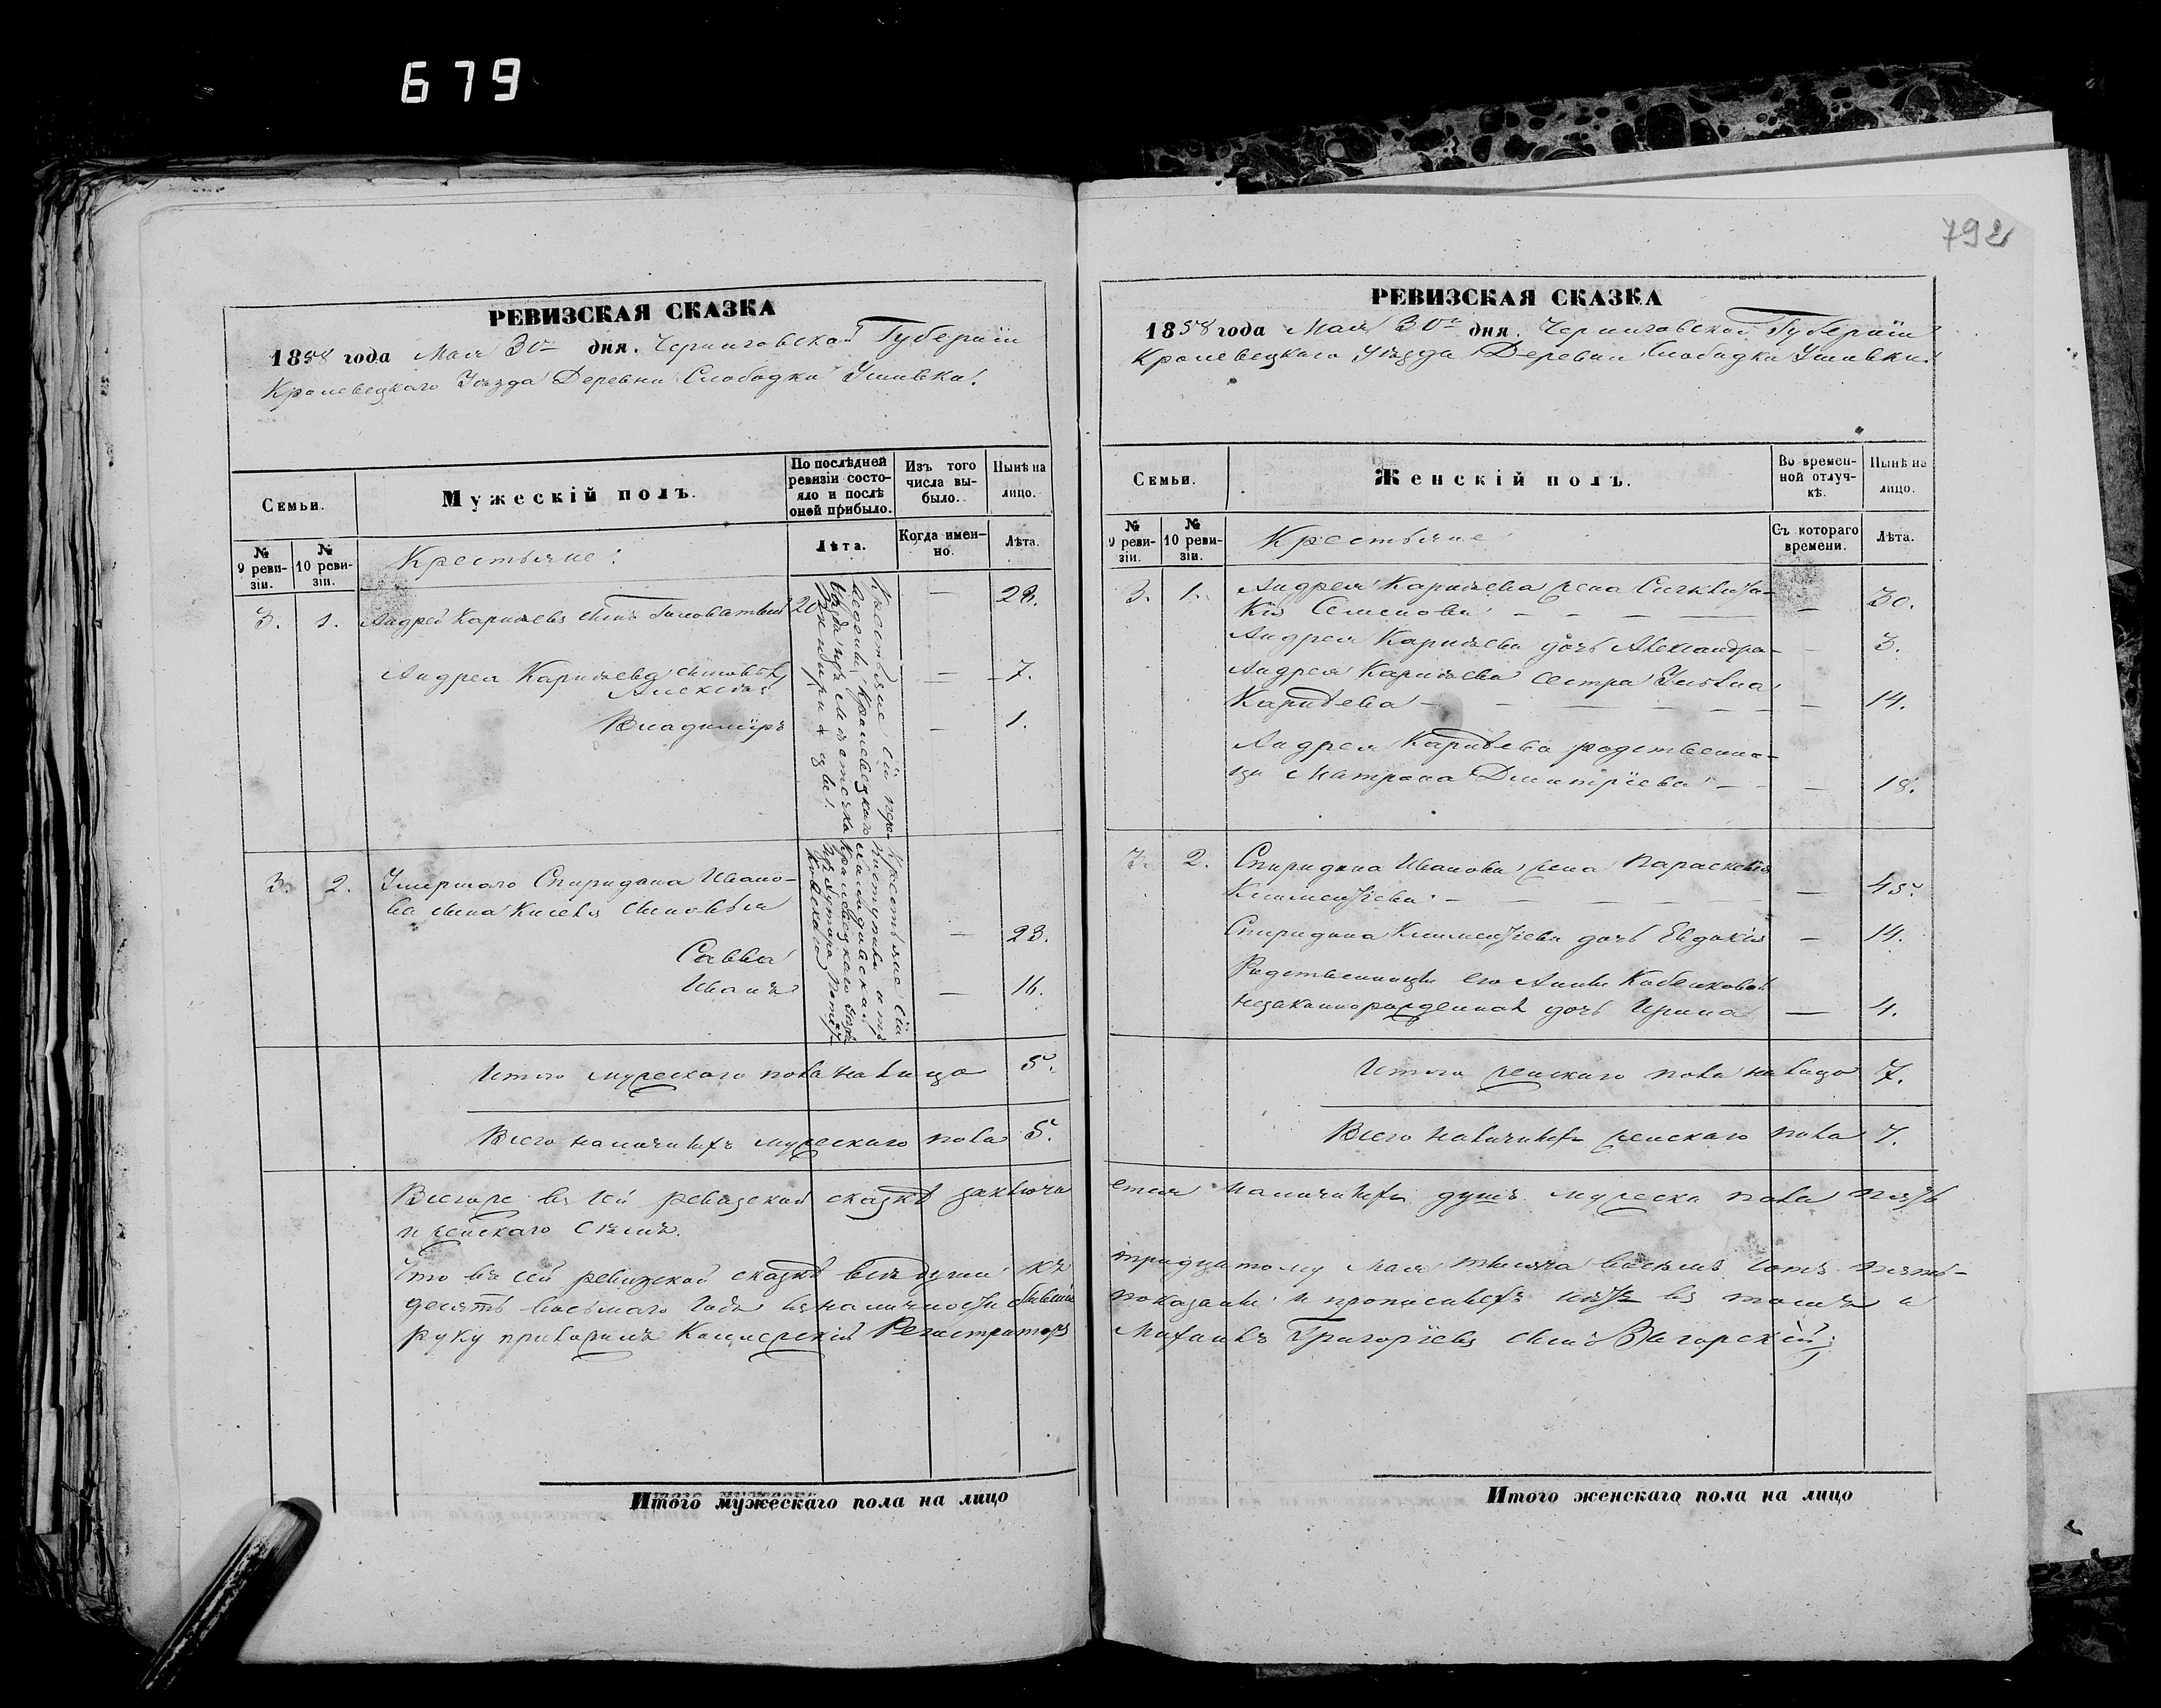 679
792
РЕВИЗСКАЯ СКАЗКА
1858 года Мая 30го дня. Черниговской Губернїи
Кролевецкаго Уѣзда Деревни Слободки Ушивки.
Семьи.
Мужескій полъ.
По послѣдней ревизіи состояло и послѣ оней прибыло.
Изъ того числа выбыло.
Нынѣ на лицо.
№ 9 ревизіи.
№ 10 ревизіи.
Крестьяне:
Лѣта.
Когда именно.
Лѣта.
3. 1. Андрей Карнѣевъ сынъ 20 — 28.
Андрея Карнѣева сыновья
Алексѣй — 7.
Владимїръ — 1.
3. 2. Умершаго Спиридона Ивано-
ва сына сыновья
Савва — 23.
Иванъ — 16.
Итого мужескаго пола на лицо 5.
Всего наличныхъ мужескаго пола 5.
Всегоже въ сей ревизской сказкѣ заключа
и женскаго семь.
Что въ сей ревизской сказкѣ всѣ души къ
десятъ восьмаго года въ наличности бывшїе
руку приложилъ Коллежскїй Регистраторъ
Итого мужескаго пола на лицо
РЕВИЗСКАЯ СКАЗКА
1858 года Мая 30го дня. Черниговской Губернїи
Кролевецкаго Уѣзда Деревни Слободки Ушивки.
Семьи.
Женскій полъ.
Во временной отлучкѣ.
Нынѣ на лицо.
№ 9 ревизіи.
№ 10 ревизіи.
Крестьяне
Съ котораго времени.
Лѣта.
3. 1. Андрея Карнѣева жена
Семенова — 30.
Андрея Карнѣева дочь Александра — 3.
Андрея Карнѣева сестра Ульяна
Карнѣева — 14.
Андрея Карнѣева родственни-
ца Матрона Дмитрїева — 18.
3. 2. Спиридона Иванова жена Параскевїя
Климентїева — 45.
Спиридона Климентїева дочь Евдокїя — 14.
Родственницы его Анны
незаконнорожденная дочь Ирина — 4.
Итого женскаго пола на лицо 7.
Всего наличныхъ женскаго пола 7.
ется наличныхъ душъ мужеска пола пять
тридцатому Мая тысяча восемь сотъ пять-
показаны и прописныхъ нѣтъ въ томъ и
Михаилъ Григорїевъ сынъ Загорскїй
Итого женскаго пола на лицо